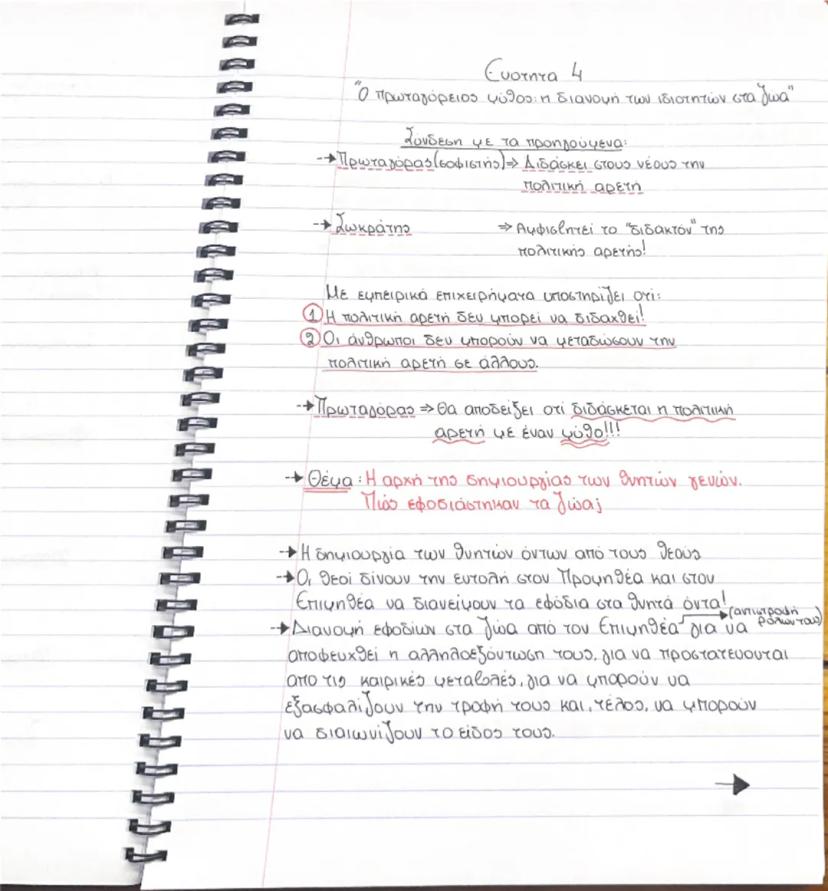 Ενότητα 4
"Ο πρωταγόρειος μύθος: η διανομή των ιδιοτήτων στα ζώα"
Σύνδεση με τα προηγούμενα:
→ Πρωταγόρας (σοφιστής) ⇒ Διδάσκει στους νέους την
πολιτική αρετή
→ Σωκράτης ⇒ Αμφισβητεί το "διδακτόν" της
πολιτικής αρετής!
Με εμπειρικά επιχειρήματα υποστηρίζει ότι:
① Η πολιτική αρετή δεν μπορεί να διδαχθεί!
② Οι άνθρωποι δεν μπορούν να μεταδώσουν την
πολιτική αρετή σε άλλους.
→ Πρωταγόρας ⇒ Θα αποδείξει ότι διδάσκεται η πολιτική
αρετή με έναν μύθο!!!
→ Θέμα: Η αρχή της δημιουργίας των θνητών γενών.
Πώς εφοδιάστηκαν τα ζώα;
→ Η δημιουργία των θνητών όντων από τους θεούς
→ Οι θεοί δίνουν την εντολή στον Προμηθέα και στον
Επιμηθέα να διανείμουν τα εφόδια στα θνητά όντα!
→ Διανομή εφοδίων στα ζώα από τον Επιμηθέα → (αντιστροφή ρόλων τους) για να
αποφευχθεί η αλληλοεξόντωση τους, για να προστατεύονται
απο τις καιρικές μεταβολές, για να μπορούν να
εξασφαλίζουν την τροφή τους και, τέλος, να μπορούν
να διαιωνίζουν το είδος τους.
→